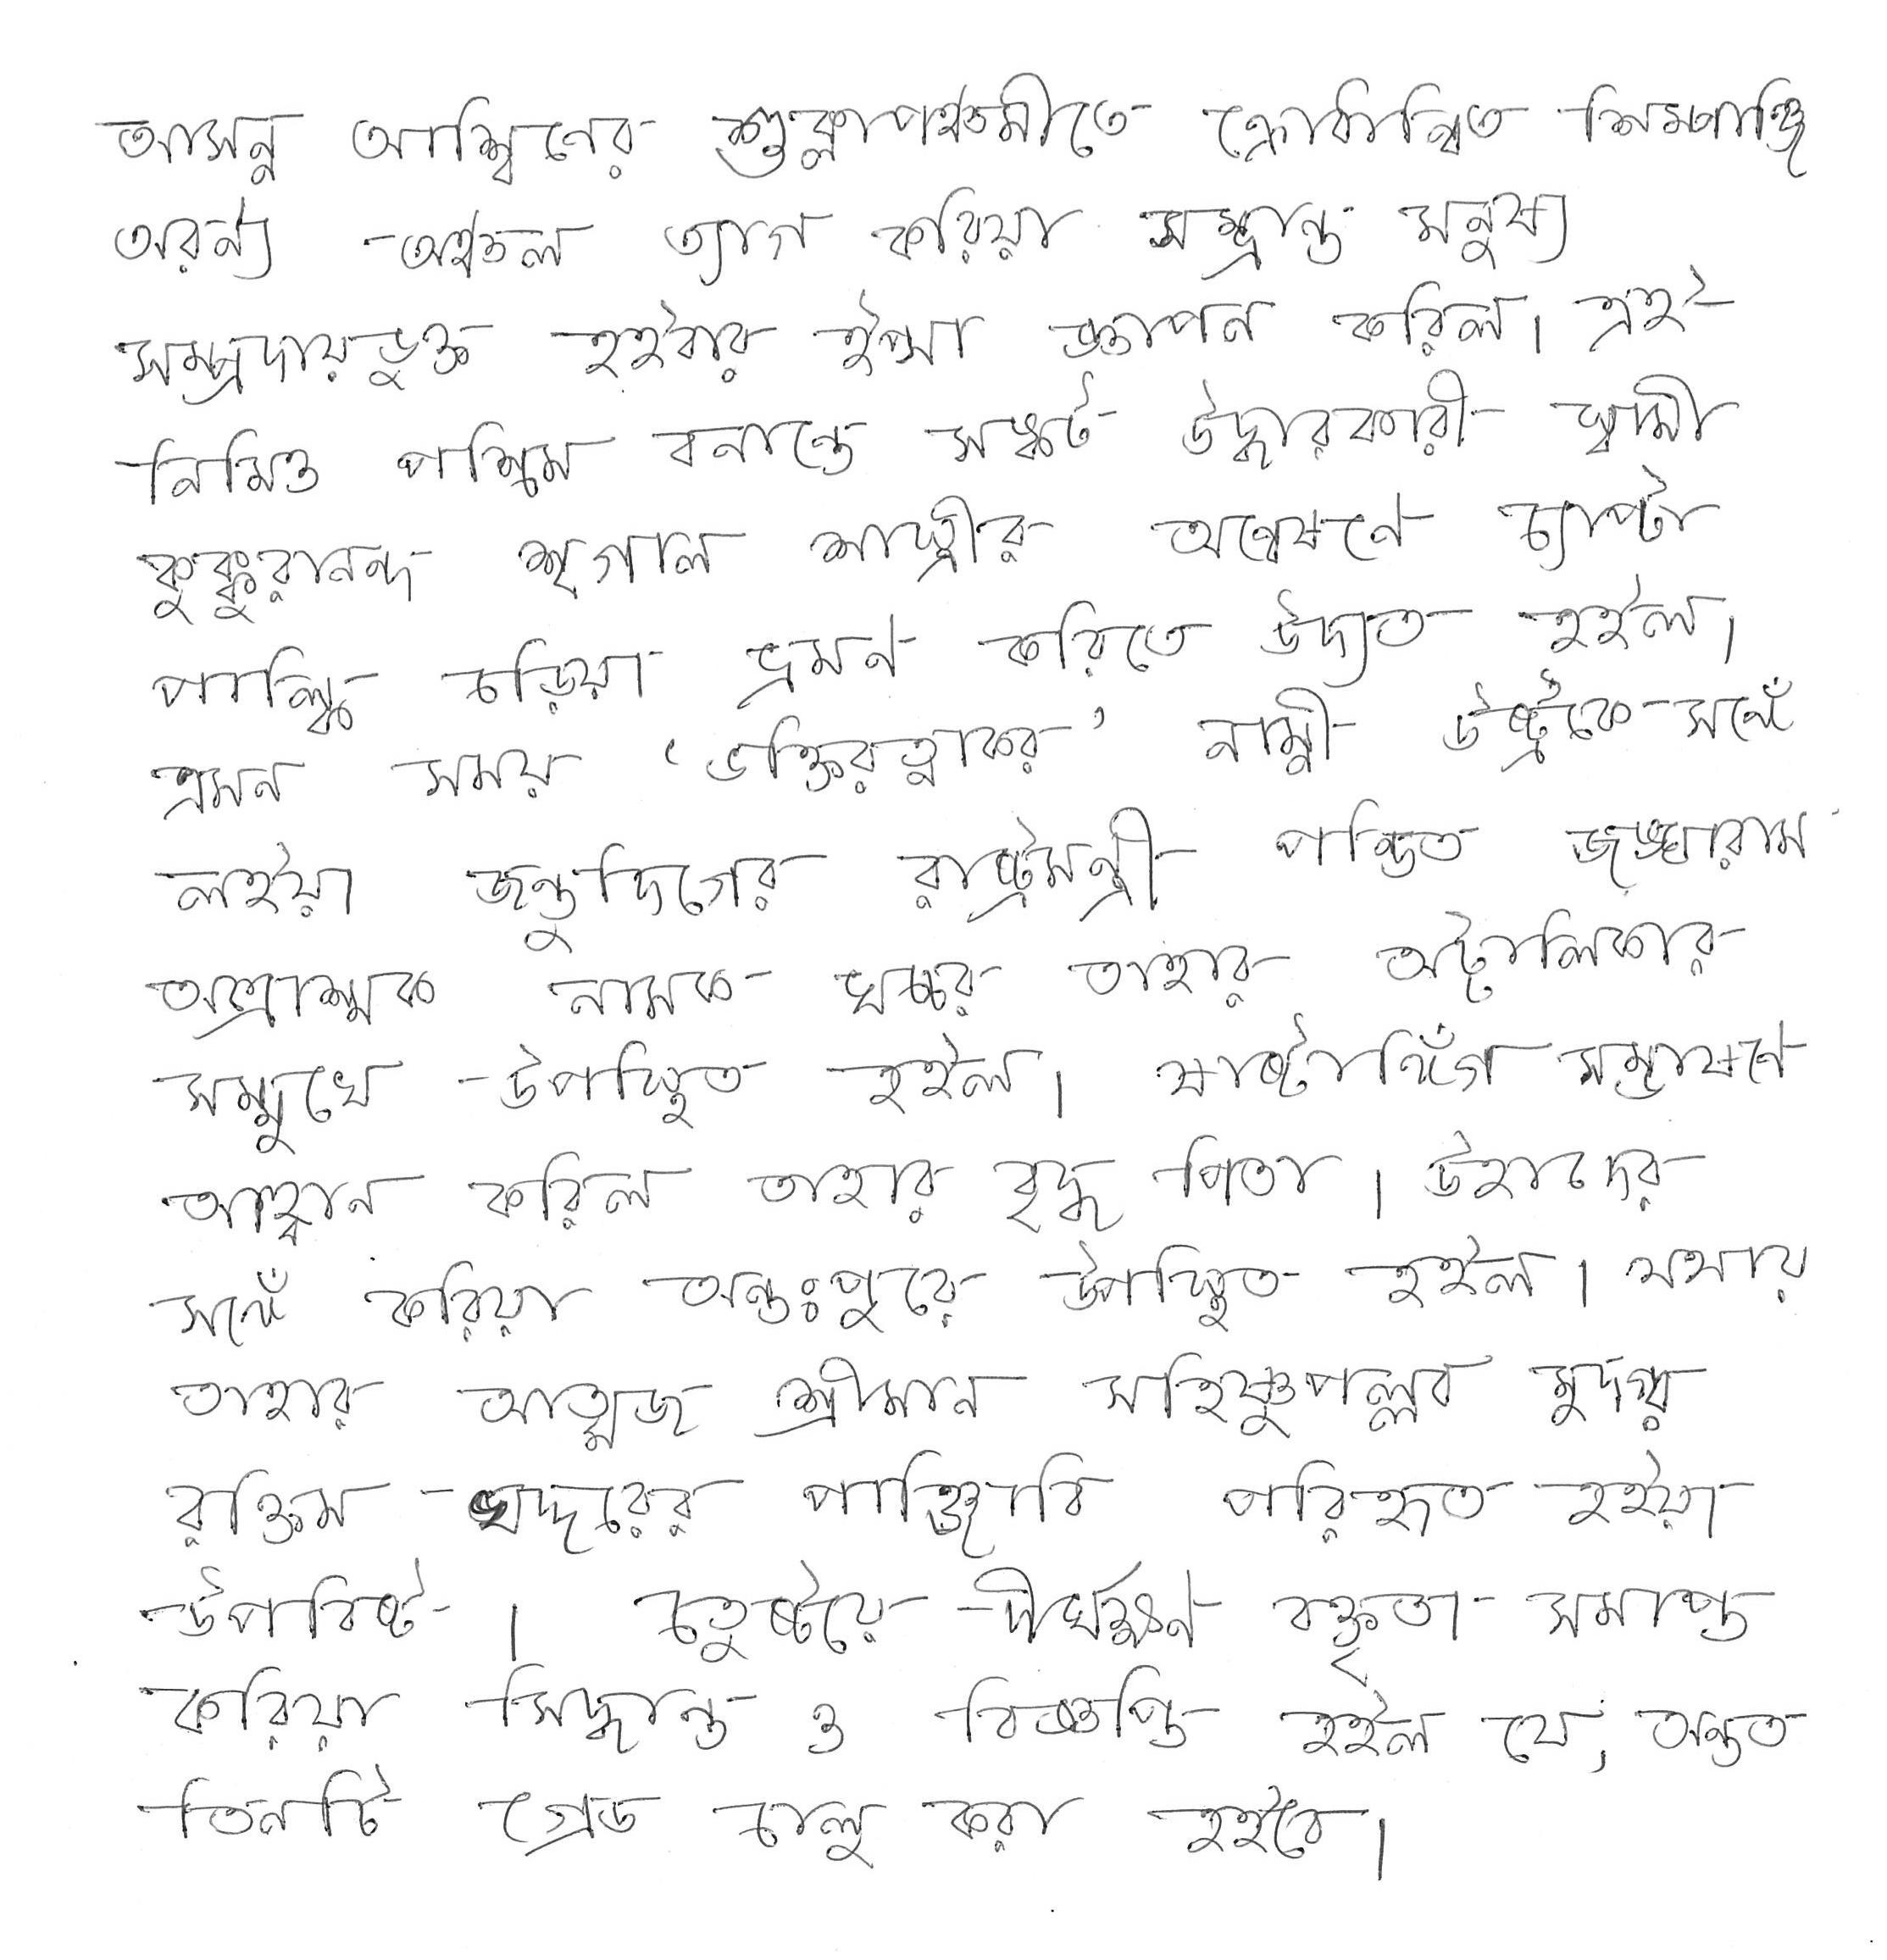 আসন্ন আশ্বিনের শুক্লাপঞ্চমীতে ক্রোধান্বিত শিম্পাঞ্জি
অরন্য অঞ্চল ত্যাগ করিয়া সম্ভ্রান্ত মনুষ্য
সম্প্রদায়ভুক্ত হইবার ইপ্সা জ্ঞাপন করিল। এই
নিমিত্ত পশ্চিম বনান্তে সঙ্কট উদ্ধারকারী স্বামী
কুক্কুরানন্দ শৃগাল শাস্ত্রীর অন্বেষনে চ্যাপ্টা
পাল্কি চড়িয়া ভ্রমণ করিতে উদ্যত হইল।
এমন সময় ‘ভক্তিরত্নাকর’ নাম্নী উষ্ট্রকে সঙ্গে
লইয়া জন্তুদিগের রাষ্ট্রমন্ত্রী পন্ডিত জঙ্ঘারাম
অশ্রাশ্মক নামক খচ্চর তাহার অট্টালিকার
সম্মুখে উপস্থিত হইল। ষাষ্টাঙ্গে সম্ভাষণে
আহ্বান করিল তাহার বৃদ্ধ পিতা। উহাদের
সঙ্গে করিয়া অন্তঃপুরে উপস্থিত হইল। যথায়
তাহার আত্মজ শ্রীমান সহিষ্ণুপল্লব মুদগ্ধ
রক্তিম খদ্দরের পাঞ্জাবি পরিহৃত হইয়া
উপবিষ্ট। চতুষ্টয়ে দীর্ঘক্ষণ বক্তৃতা সমাপ্ত
করিয়া সিদ্ধান্ত ও বিজ্ঞপ্তি হইল যে, অন্তত
তিনটি গ্রেড চালু করা হইবে।